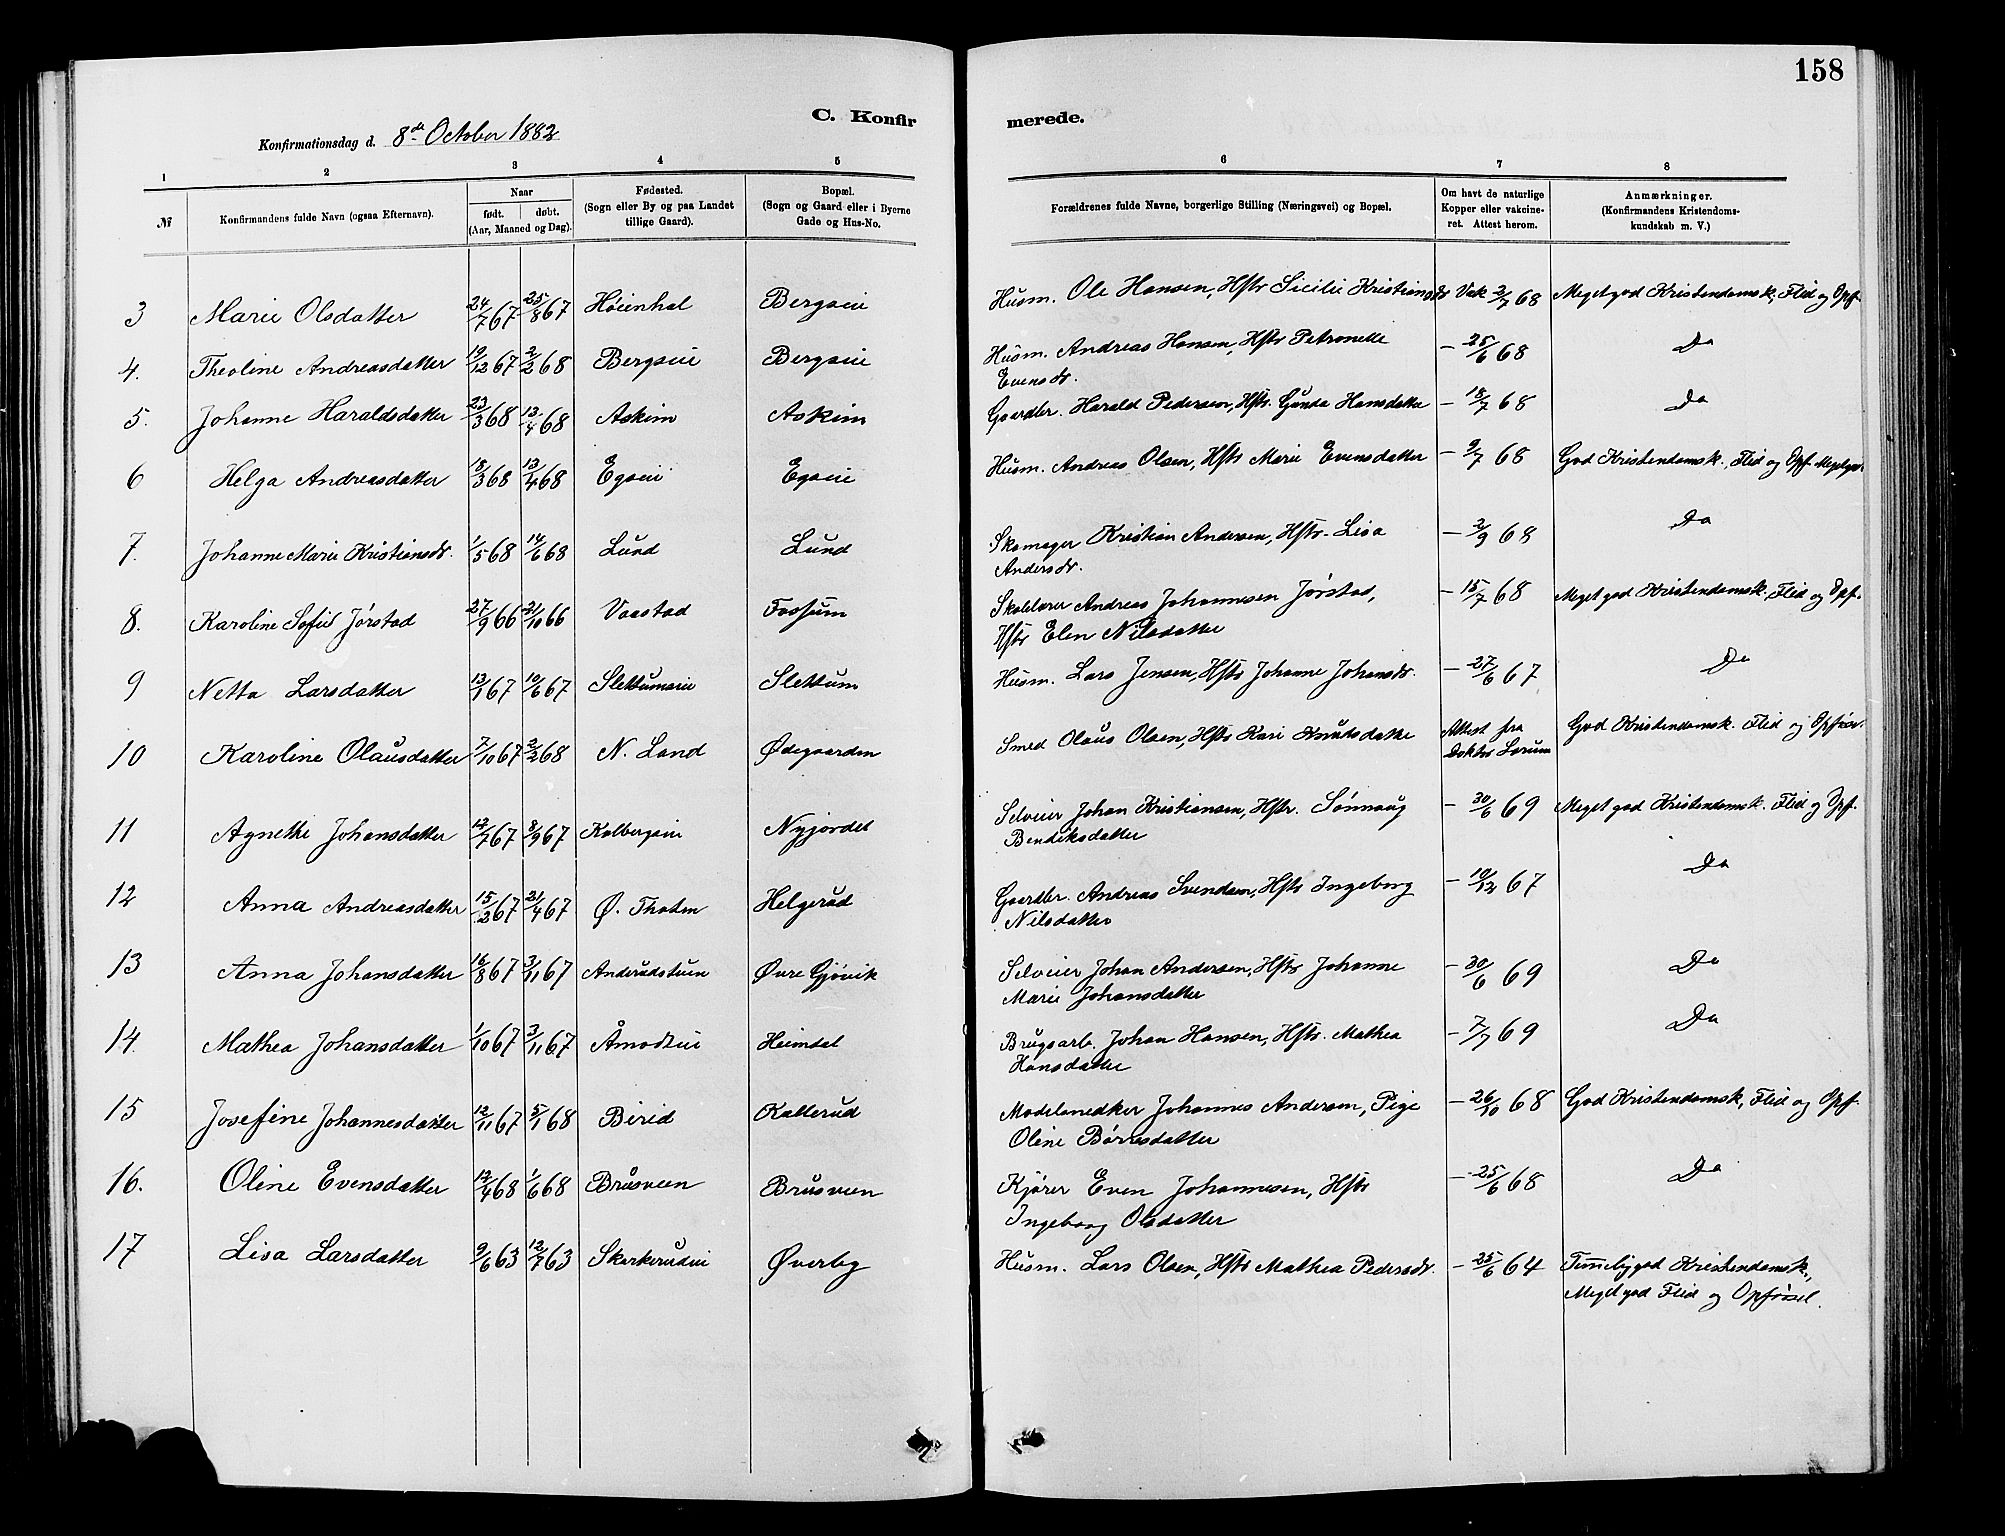 158
C. Konfir
merede.
Konfirmationsdag d. 8de October 1882
1 2 3 4 5 6 7 8
№
Konfirmandens fulde Navn (ogsaa Efternavn).
Naar
født. døbt.
(Aar, Maaned og Dag).
Fødested.
(Sogn eller By og paa Landet
tillige Gaard).
Bopæl.
(Sogn og Gaard eller i Byerne
Gade og Hus-No.
Forældrenes fulde Navne, borgerlige Stilling (Næringsvei) og Bopæl.
Om havt de naturlige
Kopper eller vakcine-
ret. Attest herom.
Anmærkninger.
(Konfirmandens Kristendoms-
kundskab m. V.)
3 Marie Olsdatter 24/7 67 25/8 67 Høienhal Bergseie Husm. Ole Hansen, Hstr Sicilie Kristiansdr Vak 2/7 68 Meget god Kristendomsk, Flid og Opf.
4. Theoline Andreasdatter 19/12 67 2/2 68 Bergseie Bergseie Husm. Andreas Hansen, Hstr Petronelle
Evensdr. – 25/6 68 Do
5. Johanne Haraldsdatter 23/3 68 13/4 68 Askim Askim Gaardbr. Harald Pedersen, Hstr. Gunda Hansdatter – 18/7 68 Do
6 Helga Andreasdatter 18/3 68 13/4 68 Egseie Egseie Husm. Andreas Olsen, Hstr Marie Evensdatter – 9/7 68 God Kristendomsk. Flid og Opf. Meget god
7. Johanne Marie Kristiansdr. 1/5 68 14/6 68 Lund Lund Skomager Kristian Andersen, Hstr. Lisa
Andersdr. – 2/9 68 Do
8. Karoline Sofie Jørstad 27/9 66 21/10 66 Vaastad Fossum Skolelærer Andreas Johannesen Jørstad,
Hstr Elen Nilsdatter – 15/7 68 Meget god Kristendomsk. Flid og Opf.
9 Netta Larsdatter 13/1 67 10/6 67 Slettumseie Slettum Husm. Lars Jensen, Hstr Johanne Johansdr. – 27/6 67 Do
10 Karoline Olausdatter 7/10 67 2/2 68 N. Land Ødegaarden Smed Olaus Olsen, Hstr Kari Knutsdatter Attest fra
Doktor Lorum God Kristendomsk. Flid og Opførs.
11 Agnethe Johansdatter 12/7 67 8/9 67 Kolbergseie Nyjordet Selveier Johan Kristiansen, Hstr. Sønnaug
Bendiksdatter – 30/6 69 Meget god Kristendomsk. Flid og Opf.
12 Anna Andreasdatter 15/2 67 21/4 67 Ø. Thoten Helgerud Gaardbr. Andreas Svendsen, Hstr Ingeborg
Nilsdatter – 10/12 67 Do
13 Anna Johansdatter 16/8 67 3/11 67 Anderudstuen Øvre Gjøvik Selveier Johan Andersen, Hstr Johanne
Marie Johansdatter – 30/6 69 Do
14. Mathea Johansdatter 1/10 67 3/11 67 Åmodtei Heimdal Brugsarb. Johan Hansen, Hstr. Mathea
Hansdatter – 7/7 69 Do
15 Josefine Johannesdatter 12/11 67 5/1 68 Birid Kallerud Modelsnedker Johannes Andersen, Pige
Oline Børresdatter – 26/10 68 God Kristendomsk, Flid og Opf.
16. Oline Evensdatter 12/4 68 1/6 68 Brusveen Brusveen Kjører Even Johannesen, Hstr
Ingeborg Olsdatter – 25/6 68 Do
17 Lisa Larsdatter 9/6 63 12/7 63 Skarkerudei Øverby Husm. Lars Olsen, Hstr Mathea Pedersdr. – 25/6 64 Temmelig god Kristendomsk.,
Meget god Flid og Opførsel.